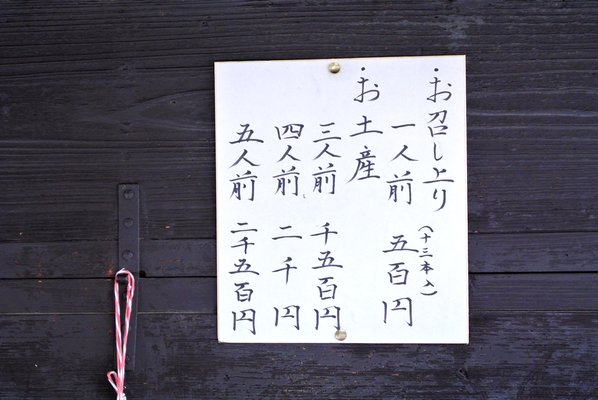 ・お召し上り
一人前 (十三本入)
五百円
・お土産
三人前 千五百円
四人前 二千円
五人前 二千五百円